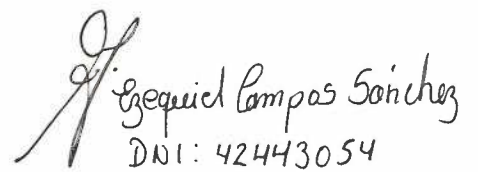 Ezequiel Campos Sánchez
DNI: 42443054